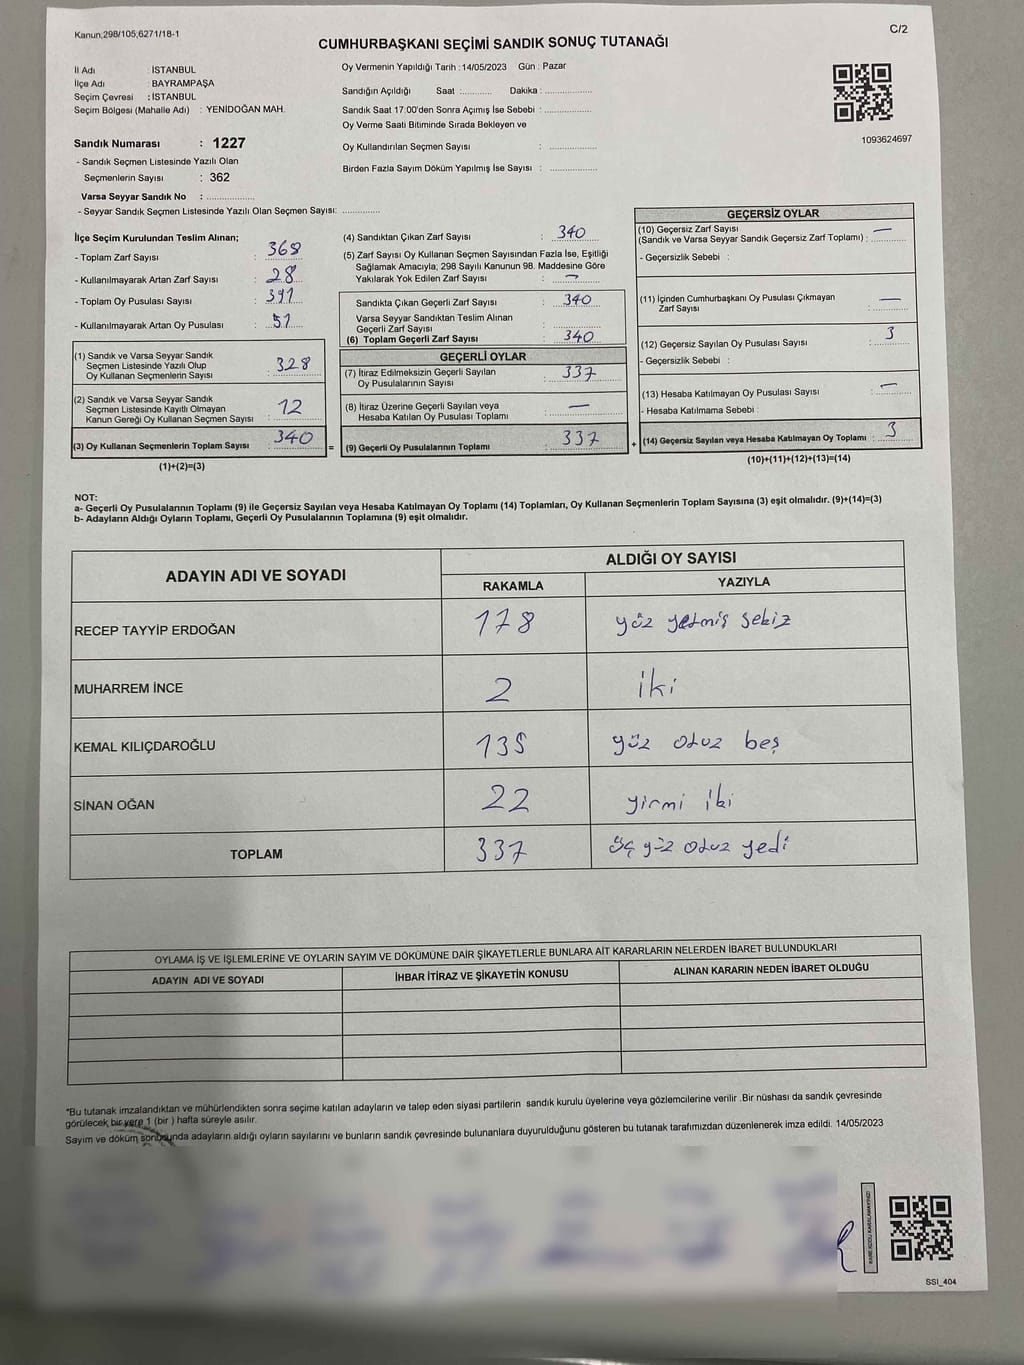 Kanun,298/105;6271/18-1
C/2
CUMHURBAŞKANI SEÇİMİ SANDIK SONUÇ TUTANAĞI
İl Adı : İSTANBUL
İlçe Adı : BAYRAMPAŞA
Seçim Çevresi : İSTANBUL
Seçim Bölgesi (Mahalle Adı) : YENİDOĞAN MAH.
Sandık Numarası : 1227
- Sandık Seçmen Listesinde Yazılı Olan
Seçmenlerin Sayısı : 362
Varsa Seyyar Sandık No : ..................
- Seyyar Sandık Seçmen Listesinde Yazılı Olan Seçmen Sayısı: ..............
Oy Vermenin Yapıldığı Tarih : 14/05/2023 Gün : Pazar
Sandığın Açıldığı Saat :............ Dakika :.................
Sandık Saat 17:00'den Sonra Açımış İse Sebebi :.................
Oy Verme Saati Bitiminde Sırada Bekleyen ve
Oy Kullandırılan Seçmen Sayısı : .................
Birden Fazla Sayım Döküm Yapılmış İse Sayısı : .................
1093624697
İlçe Seçim Kurulundan Teslim Alınan;
- Toplam Zarf Sayısı : 368
- Kullanılmayarak Artan Zarf Sayısı : 28
- Toplam Oy Pusulası Sayısı : 391
- Kullanılmayarak Artan Oy Pusulası : 51
(1) Sandık ve Varsa Seyyar Sandık
Seçmen Listesinde Yazılı Olup
Oy Kullanan Seçmenlerin Sayısı : 328
(2) Sandık ve Varsa Seyyar Sandık
Seçmen Listesinde Kayıtlı Olmayan
Kanun Gereği Oy Kullanan Seçmen Sayısı : 12
(3) Oy Kullanan Seçmenlerin Toplam Sayısı : 340
(1)+(2)=(3)
(4) Sandıktan Çıkan Zarf Sayısı : 340
(5) Zarf Sayısı Oy Kullanan Seçmen Sayısından Fazla İse, Eşitliği
Sağlamak Amacıyla, 298 Sayılı Kanunun 98. Maddesine Göre
Yakılarak Yok Edilen Zarf Sayısı : —
Sandıkta Çıkan Geçerli Zarf Sayısı : 340
Varsa Seyyar Sandıktan Teslim Alınan
Geçerli Zarf Sayısı :
(6) Toplam Geçerli Zarf Sayısı : 340
GEÇERLİ OYLAR
(7) İtiraz Edilmeksizin Geçerli Sayılan
Oy Pusulalarının Sayısı : 337
(8) İtiraz Üzerine Geçerli Sayılan veya
Hesaba Katılan Oy Pusulası Toplamı : —
= (9) Geçerli Oy Pusulalarının Toplamı : 337
GEÇERSİZ OYLAR
(10) Geçersiz Zarf Sayısı —
(Sandık ve Varsa Seyyar Sandık Geçersiz Zarf Toplamı) :
- Geçersizlik Sebebi :
(11) İçinden Cumhurbaşkanı Oy Pusulası Çıkmayan
Zarf Sayısı : —
(12) Geçersiz Sayılan Oy Pusulası Sayısı : 3
- Geçersizlik Sebebi :
(13) Hesaba Katılmayan Oy Pusulası Sayısı : —
- Hesaba Katılmama Sebebi :
+ (14) Geçersiz Sayılan veya Hesaba Katılmayan Oy Toplamı : 3
(10)+(11)+(12)+(13)=(14)
NOT:
a- Geçerli Oy Pusulalarının Toplamı (9) ile Geçersiz Sayılan veya Hesaba Katılmayan Oy Toplamı (14) Toplamları, Oy Kullanan Seçmenlerin Toplam Sayısına (3) eşit olmalıdır. (9)+(14)=(3)
b- Adayların Aldığı Oyların Toplamı, Geçerli Oy Pusulalarının Toplamına (9) eşit olmalıdır.
ADAYIN ADI VE SOYADI
ALDIĞI OY SAYISI
RAKAMLA YAZIYLA
RECEP TAYYİP ERDOĞAN 178 yüz yetmiş sekiz
MUHARREM İNCE 2 iki
KEMAL KILIÇDAROĞLU 135 yüz otuz beş
SİNAN OĞAN 22 yirmi iki
TOPLAM 337 üç yüz otuz yedi
OYLAMA İŞ VE İŞLEMLERİNE VE OYLARIN SAYIM VE DÖKÜMÜNE DAİR ŞİKAYETLERLE BUNLARA AİT KARARLARIN NELERDEN İBARET BULUNDUKLARI
ADAYIN ADI VE SOYADI İHBAR İTİRAZ VE ŞİKAYETİN KONUSU ALINAN KARARIN NEDEN İBARET OLDUĞU
*Bu tutanak imzalandıktan ve mühürlendikten sonra seçime katılan adayların ve talep eden siyasi partilerin sandık kurulu üyelerine veya gözlemcilerine verilir .Bir nüshası da sandık çevresinde
görülecek bir yere 1 (bir ) hafta süreyle asılır.
Sayım ve döküm sonucunda adayların aldığı oyların sayılarını ve bunların sandık çevresinde bulunanlara duyurulduğunu gösteren bu tutanak tarafımızdan düzenlenerek imza edildi. 14/05/2023
SSI_404